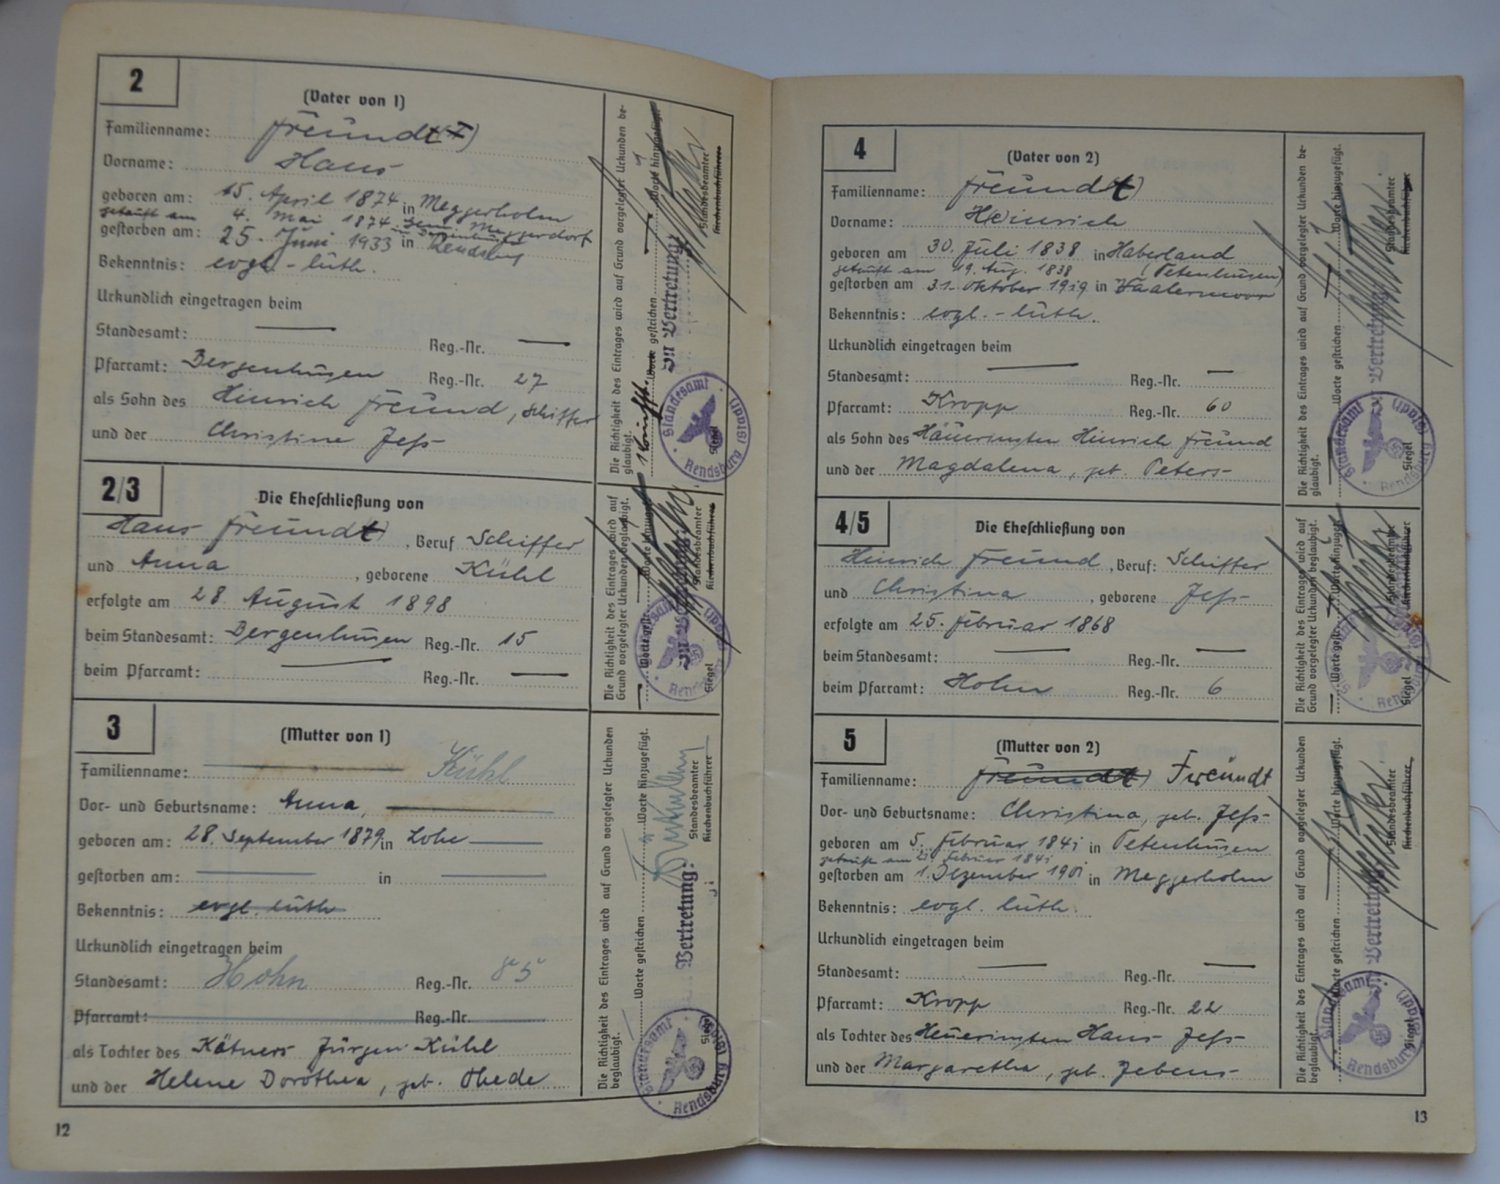 2
(Vater von 1)
Familienname: Freundt
Vorname: Hans
geboren am: 15. April 1874 in Meggerholm
getauft am 4. Mai 1874 Meggerdorf
gestorben am: 25. Juni 1933 in Rendsburg
Bekenntnis: evgl.-luth.
Urkundlich eingetragen beim
Standesamt: — Reg.-Nr. —
Pfarramt: Bergenhusen Reg.-Nr. 27
als Sohn des Heinrich Freund, Schiffer
und der Christine Jeß
Die Richtigkeit des Eintrages wird auf Grund vorgelegter Urkunden be-
glaubigt.
Worte gestrichen Worte hinzugefügt.
In Vertretung:
Standesbeamter
Kirchenbuchführer
Standesamt Rendsburg (Stadt)
Siegel
2/3
Die Eheschließung von
Hans Freundt, Beruf Schiffer
und Anna, geborene Kühl
erfolgte am 28. August 1898
beim Standesamt: Bergenhusen Reg.-Nr. 15
beim Pfarramt: — Reg.-Nr. —
Die Richtigkeit des Eintrages wird auf
Grund vorgelegter Urkunden beglaubigt.
Standesbeamter
Kirchenbuchführer
Siegel
3
(Mutter von 1)
Familienname: Kühl
Vor- und Geburtsname: Anna,
geboren am: 28. September 1879 in Lohe
gestorben am: — in —
Bekenntnis: evgl. luth
Urkundlich eingetragen beim
Standesamt: Hohn Reg.-Nr. 85
Pfarramt: Reg.-Nr.
als Tochter des Kätners Jürgen Kühl
und der Helene Dorothea, geb. Thede
Die Richtigkeit des Eintrages wird auf Grund vorgelegter Urkunden
beglaubigt.
Worte gestrichen Worte hinzugefügt.
In Vertretung:
Standesbeamter
Kirchenbuchführer
Standesamt Rendsburg (Stadt)
Siegel
12
4
(Vater von 2)
Familienname: Freundt
Vorname: Heinrich
geboren am 30. Juli 1838 in Haberland
getauft am 19. Aug. 1838 (Petenhusen)
gestorben am 31. Oktober 1919 in Vaalermoor
Bekenntnis: evgl.-luth.
Urkundlich eingetragen beim
Standesamt: — Reg.-Nr. —
Pfarramt: Kropp Reg.-Nr. 60
als Sohn des Häueringsten Hinrich Freund
und der Magdalena, geb. Peters
Die Richtigkeit des Eintrages wird auf Grund vorgelegter Urkunden be-
glaubigt.
Worte gestrichen Worte hinzugefügt.
In Vertretung
Standesbeamter
Kirchenbuchführer
Standesamt Rendsburg (Stadt)
Siegel
4/5
Die Eheschließung von
Hinrich Freund, Beruf: Schiffer
und Christina, geborene Jeß
erfolgte am 25. Februar 1868
beim Standesamt: — Reg.-Nr. —
beim Pfarramt: Hohn Reg.-Nr. 6
Die Richtigkeit des Eintrages wird auf
Grund vorgelegter Urkunden beglaubigt.
Siegel
5
(Mutter von 2)
Familienname: Freundt Freundt
Vor- und Geburtsname: Christina, geb. Jeß
geboren am 5. Februar 1841 in Petenhusen
getauft am 21. Februar 1841
gestorben am 1. Dezember 1901 in Meggerholm
Bekenntnis: evgl. luth.
Urkundlich eingetragen beim
Standesamt: — Reg.-Nr. —
Pfarramt: Kropp Reg.-Nr. 22
als Tochter des Heueringsten Hans Jeß
und der Margaretha, geb. Jebens
Die Richtigkeit des Eintrages wird auf Grund vorgelegter Urkunden
beglaubigt.
Worte gestrichen Worte hinzugefügt.
In Vertretung
Standesbeamter
Kirchenbuchführer
Standesamt Rendsburg (Stadt)
Siegel
13